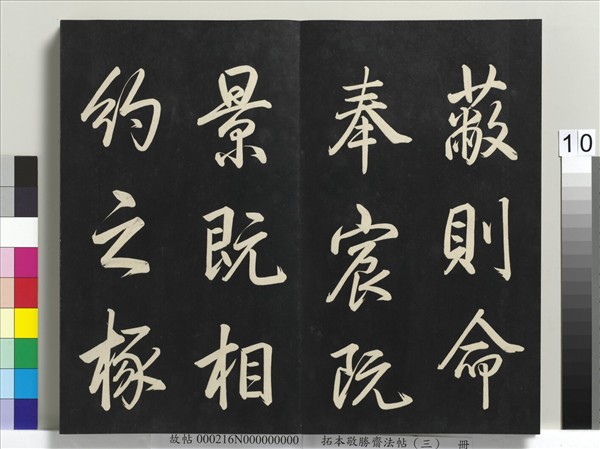 蔽則命
奉宸院
景既相
約之椽
10
故帖000216N000000000 拓本敬勝齋法帖(三) 冊